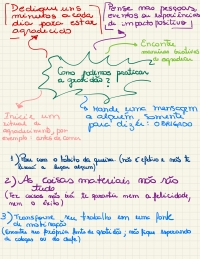 Dedique uns
minutos a cada
dia para estar
agradecido
Pense nas pessoas,
eventos ou experiências
de impacto positivo
Encontre
maneiras criativas
de agradecer
Como podemos praticar
a gratidão?
Inicie um
ritual de
agradecimento, por
exemplo: antes da cama
Mande uma mensagem
a alguém somente
para dizer: OBRIGADO
1) Pare com o hábito da queixa (não é efetivo e não te
levará a lugar algum)
2) As coisas materiais não são
tudo
(Ter coisas não te garante nem a felicidade,
nem o êxito)
3) Transforme seu trabalho em uma fonte
de motivação
(Encontre sua própria fonte de gratidão; não fique esperando
de colegas ou do chefe)